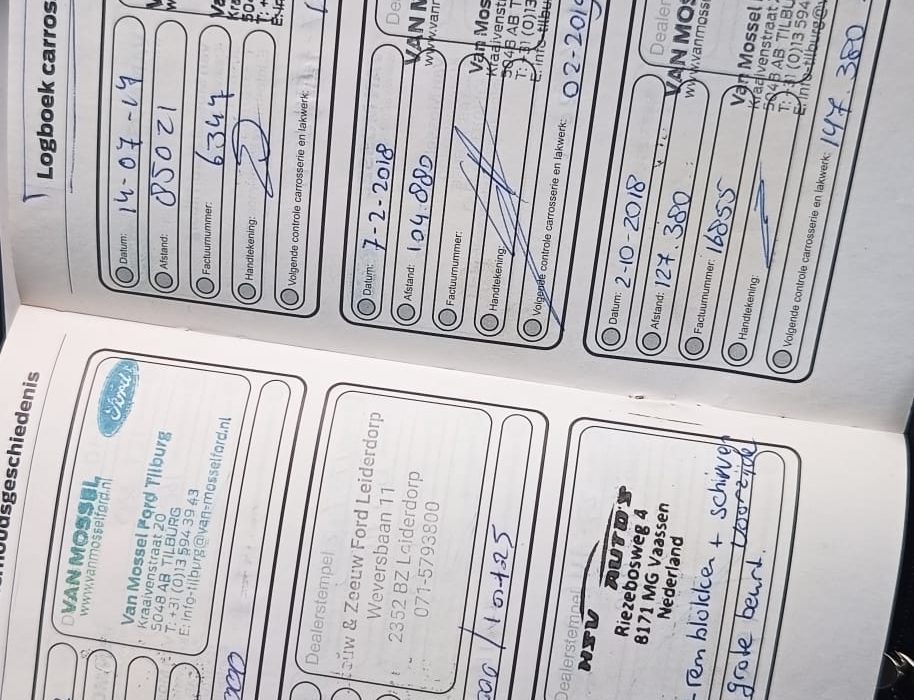 Logboek carros
Datum: 14-07-17
Afstand: 85021
Factuurnummer: 6347
Handtekening:
Volgende controle carrosserie en lakwerk:
Datum: 7-2-2018
Afstand: 104.880
Factuurnummer:
Handtekening:
Volgende controle carrosserie en lakwerk: 02-2019
VAN M
www.vanm
Van Mos
Kraaivenst
5048 AB T
T: +31 (0)13
E: info-tilbu
Datum: 2-10-2018
Afstand: 127.380
Factuurnummer: 16855
Handtekening:
Volgende controle carrosserie en lakwerk: 147.380
Dealer
VAN MOS
www.vanmoss
Van Mossel
Kraaivenstraat
5048 AB TILBU
T: +31 (0)13 594
E: info-tilburg@v
oudsgeschiedenis
VAN MOSSEL
www.vanmosselford.nl
Ford
Van Mossel Ford Tilburg
Kraaivenstraat 20
5048 AB TILBURG
T: +31 (0)13 594 39 43
E: info-tilburg@van-mosselford.nl
Dealerstempel
uw & Zeeuw Ford Leiderdorp
Weversbaan 11
2352 BZ Leiderdorp
071-5793800
Dealerstempel
HSV AUTO'S
Riezebosweg 4
8171 MG Vaassen
Nederland
- remblokken + schijven
grote beurt. voorzijde